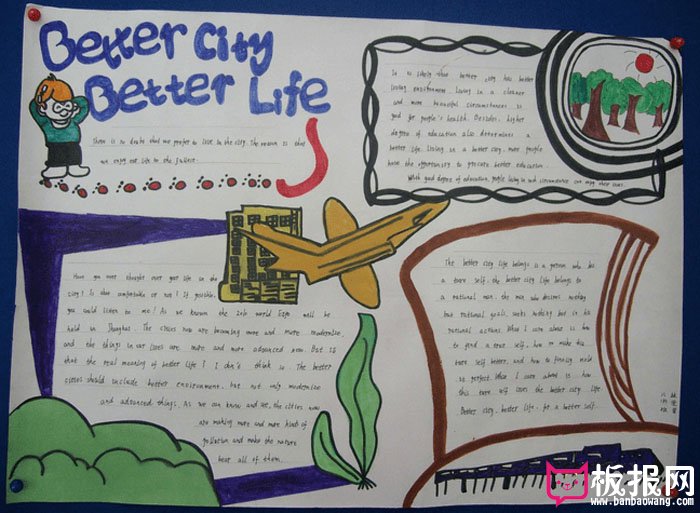 Better City
Better Life
There is no doubt that we prefer to live in the city. The reason is that
we enjoy our life to the fullest.
It is likely that better city has better
living environment. Living in a cleaner
and more beautiful circumstances is
good for people's health. Besides, higher
degree of education also determines a
better life. Living in a better city, more people
have the opportunity to procure better education.
With good degree of education, people living in and circumstance can enjoy their lives.
Have you ever thought over your life in the
city? Is it comfortable or not? If possible,
you could listen to me! As we known the 2010 world Expo will be
held in Shanghai. The cities now are becoming more and more modernize
and the things in our lives are more and more advanced now. But is
that the real meaning of better life? I don't think so. The better
cities should include better environment, but not only modernize
and advanced things. As we can know and see, the cities now
are making more and more kinds of
pollution and make the nature
bear all of them.
The better city life belongs to a person who has
a ture self. the better city life belongs to
a rational man. the man who desires nothing
but rational goals, seeks nothing but
rational actions. What I care about is how
to find a true self, how to make this
ture self better, and how to finally make
is perfect. What I care about is how
this ture self lives the better city life.
Better city, better life, for a better self.
板报网
www.banbaowang.com